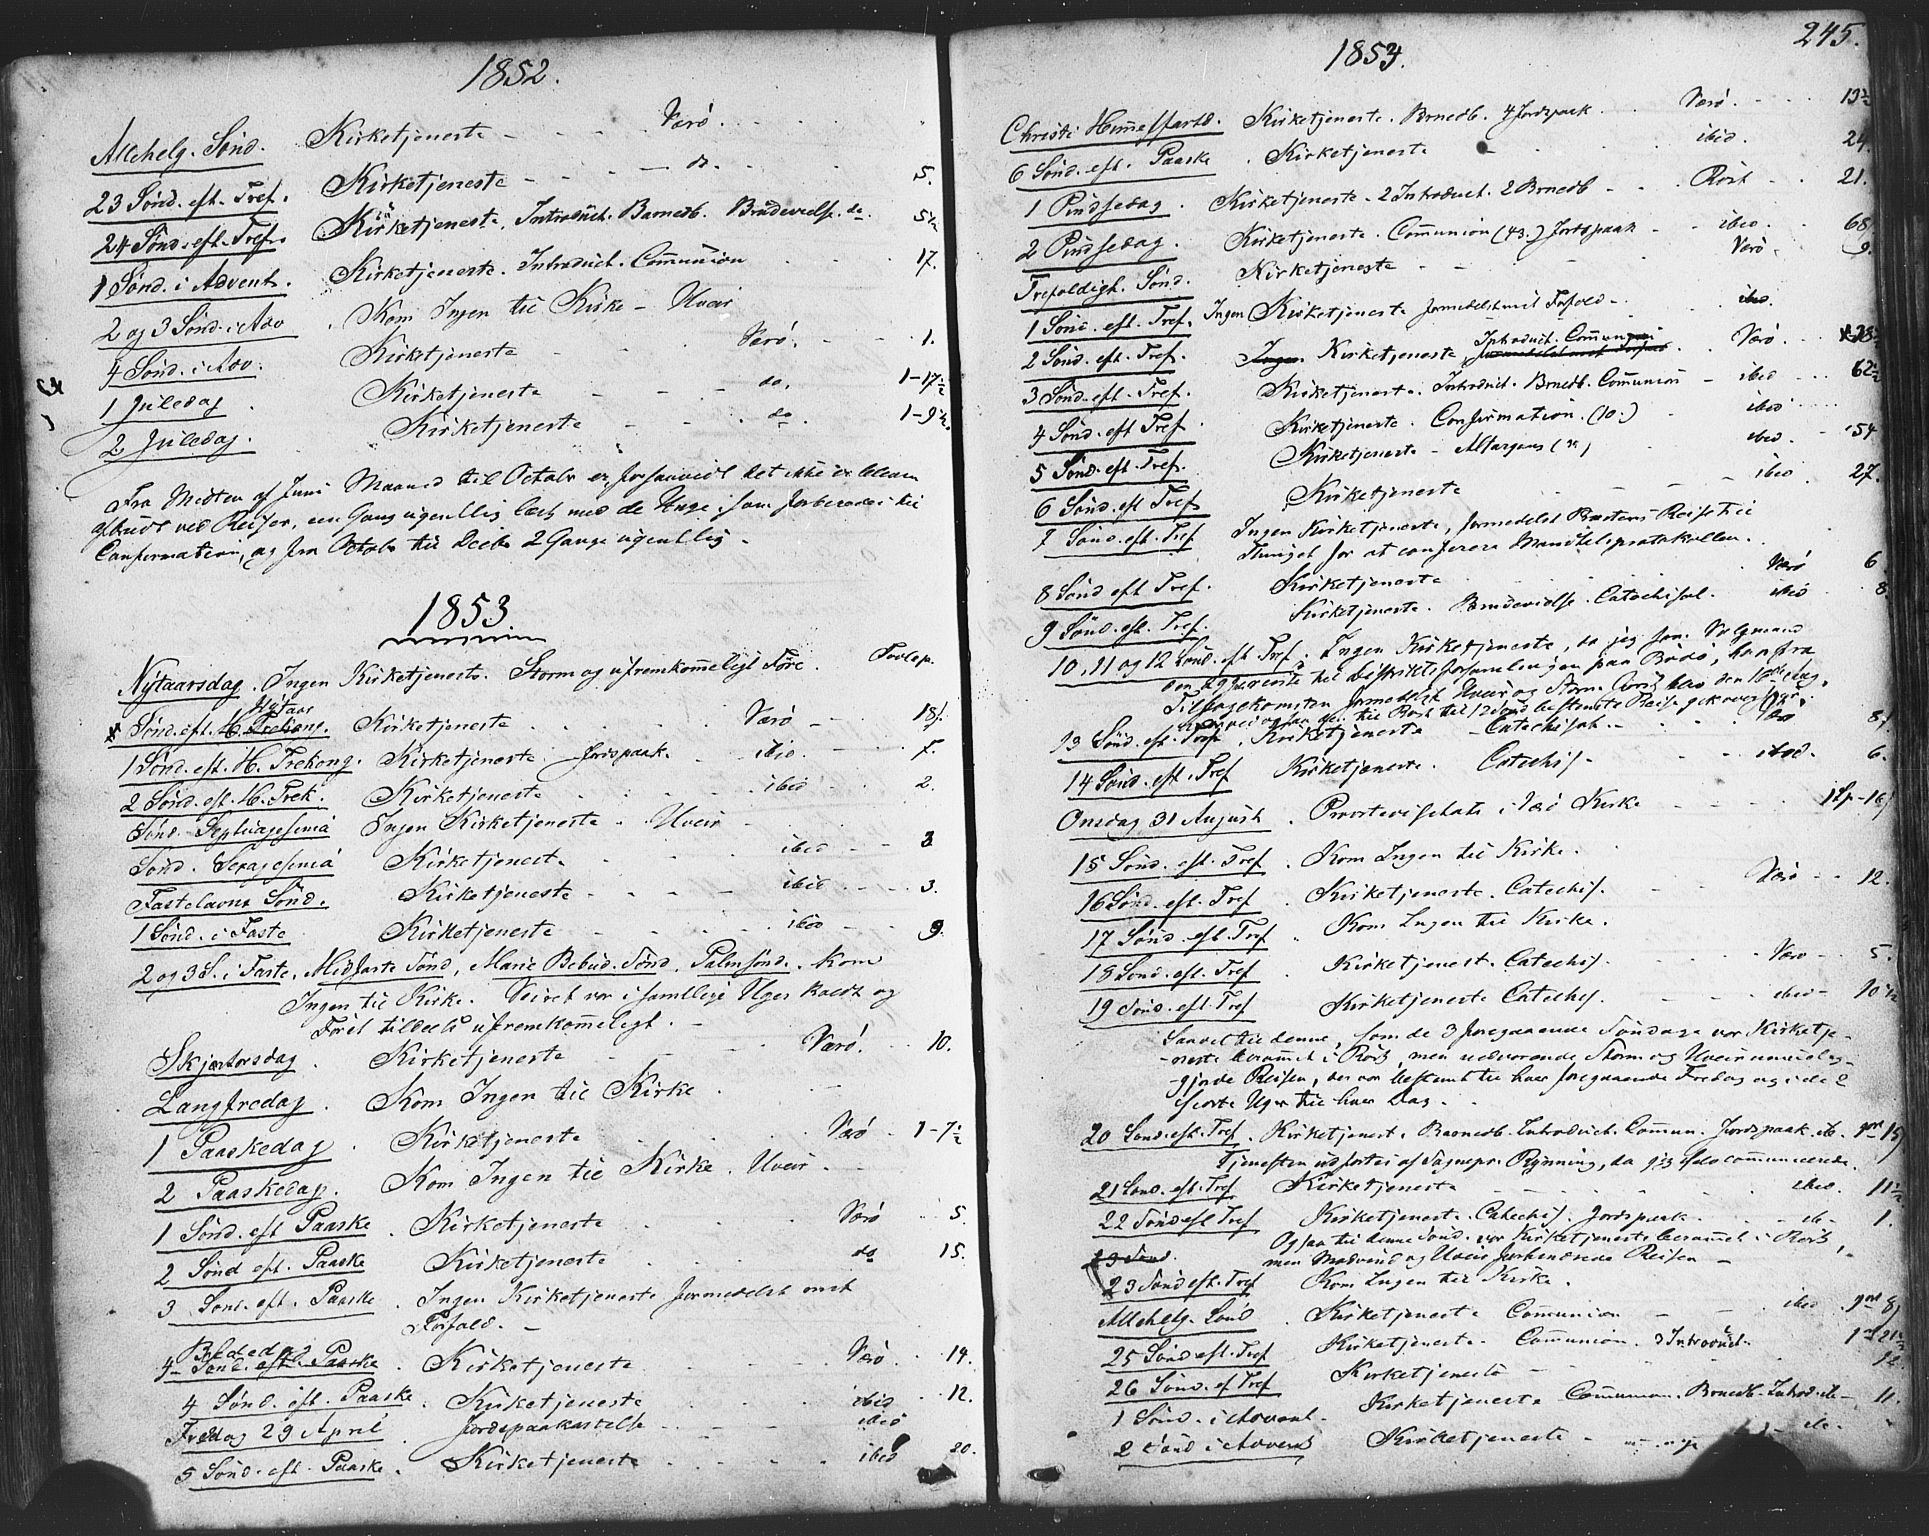 1852.
Allehelg. Sønd. Kirketjeneste - - - Værø - - -
23 Sønd. eft. Tref. Kirketjeneste - - - - do. - - - 5.
24 Sønd. eft. Tref. Kirketjeneste. Introduct. Barnedb. Brudevielse do. 5½
1 Sønd. i Advent. Kirketjeneste. Introduct. Communion - - - 17.
2 og 3 Sønd. i Adv. Kom Ingen til Kirke - Uveir
4 Sønd. i Adv. Kirketjeneste - - - Værø. - - - 1.
1 Juledag. Kirketjeneste - - - do. 1-17½
2 Juledag. Kirketjeneste - - - do. 1-9½.
Fra Medten af Juni Maaned til Octobr er forsaavidt det ikke er bleven
afbrudt ved Reiser, een Gang ugentlig læst med de Unge, som forberedes til
Confirmation, og fra Octobr til Decbr 2 Gange ugentlig.
1853
Nytaarsdag. Ingen Kirketjeneste. Storm og ufremkommeligt Føre. Tavlep.
Nytaar
Sønd. eft. H. Trekong. Kirketjeneste - - - Værø - - 18.
1 Sønd. eft. H. Trekong. Kirketjeneste. Jordspaak. - - ibid - - - 7.
2 Sønd. eft. H. Trek. Kirketjeneste - - - ibid - - - 2.
Sønd. Septuagesima Ingen Kirketjeneste. Uveir - - -
Sønd. Sexagesima Kirketjenest. - - - ibid - - - 3
Fastelavns Sønd. Kirketjeneste - - - ibid - - - 3.
1 Sønd. i Faste Kirketjeneste - - - ibid - - - 9.
2 og 3 S. i Faste, Midfaste Sønd, Marie Bebud. Sønd, Palmsønd. Kom
Ingen til Kirke. Veiret var i samtlige Uger koldt og
Føret tildeels ufremkommeligt. -
Skjærtorsdag. Kirketjeneste - - - Værø. - - 10.
Langfredag. Kom Ingen til Kirke. -
1 Paaskedag. Kirketjeneste - - - Værø - 1-7½
2 Paaskedag. Kom Ingen til Kirke. Uveir.
1 Sønd. eft Paaske. Kirketjeneste - - - Værø - - 5.
2 Sønd eft. Paaske Kirketjeneste - - - do - - 15.
3 Sønd. eft. Paaske. Ingen Kirketjeneste formedelst ondt
Forfald. -
Bededag
4 Sønd. eft. Paaske. Kirketjeneste - - - Værø - - 14.
4 Sønd. eft. Paaske. Kirketjeneste - - - ibid - - 12.
Fredag 29 April. Jordspaakastelse - - - ibid
5 Sønd. eft. Paaske. Kirketjeneste - - - ibid 20.
245.
1853.
Christi Himmelfartsd. Kirketjeneste. Barnedb. 4 Jordspaak - - Værø. - - 13½
6 Sønd. eft. Paaske. Kirketjeneste - - - ibid. 24.
1 Pindsedag. Kirketjeneste. 2 Introduct. 2 Barnedb - - - Røst - - 21.
2 Pindsedag. Kirketjeneste. Communion (43.) Jordspaak - - ibid. - 68.
Trefoldigh. Sønd. Kirketjeneste - - - Værø. 9.
1 Sønd. eft. Tref. Ingen Kirketjeneste formedelst mit Forfald - - ibid.
2 Sønd. eft. Tref. Ingen Kirketjeneste Introduct. Communion Værø - -
3 Sønd. eft. Tref. Kirketjeneste. Introduct. Barnedb. Communion - ibid - - 62½
4 Sønd. eft Tref Kirketjeneste. Confirmation. (10.) - ibid - - -
5 Sønd. eft. Tref. Kirketjeneste - Altergang - ibid. - 54
6 Sønd. eft Tref Kirketjeneste - - - ibid 27.
7 Sønd. eft. Tref Ingen Kirketjeneste, formedelst Præstens Reise til
Thinget for at conferere Mandtalsprotokollen.
8 Sønd eft Tref. Kirketjeneste - - - Værø 6
9 Sønd. eft. Tref. Kirketjeneste. Brudevielse. Catechisat. - ibid 8.
10, 11 og 12 Sønd. eft Tref. Ingen Kirketjeneste, da jeg som Valgmand
den Tid reiste til Distriktsforsamlingen paa Bodø, hvorfra
Tilbagekomsten formedelst Uveir og Storm først blev den 16de Aug.
13 Sønd. eft. Tref. Kirketjeneste - Catechisat. - - Værø 8.
14 Sønd. eft. Tref Kirketjeneste. Catechis. - - - ibid. 6.
Onsdag 31 August. Provstevisitats i Værø Kirke - - - 1Sp-16
15 Sønd. eft. Tref. Kom Ingen til Kirke.
16 Sønd. eft. Tref. Kirketjeneste. Catechis. - - Værø - - 12.
17 Sønd. eft. Tref. Kom Ingen til Kirke.
18 Sønd. eft. Tref Kirketjenest. Catechis. - - - Værø - - 5.
19 Sønd. eft. Tref Kirketjeneste Catechis. - - - ibid - 10½
Saavel til denne, som de 3 foregaaende Søndage var Kirketje-
-neste berammet i Røst, men vedvarende Storm og Uveir umulig-
-gjorde Reisen, der var bestemt til hver foregaaende Fredag og i de 2
sidste Uger til hver Dag.
20 Sønd. eft. Tref. Kirketjenest. Barnedb. Introduct. Commun. Jordspaak. ib. 15
Tjenesten udførtes af Sognepr. Rynning, da jeg selv communicerede.
21 Sønd. eft. Tref Kirketjeneste - - - ibid. 11½
22 Sønd eft Tref Kirketjeneste. Catechis. Jordspaak. - - ib - 1.
Ogsaa til denne Sønd. var Kirketjeneste berammet i Røst,
23 Sønd. men Modvind og Uveir forhindrede Reisen -
23 Sønd eft. Tref Kom Ingen til Kirke.
Allehelg. Sønd. Kirketjeneste Communion - - ibid. 8
25 Sønd eft. Tref Kirketjeneste. Communion. 3 Introduct. 21½
26 Sønd. ef Tref Kirketjeneste - - - 12.
1 Sønd. i Advent. Kirketjeneste Communion. Barnedb. Introd. ib - 11.
2 Sønd i Advent Kirketjeneste - - - ib.